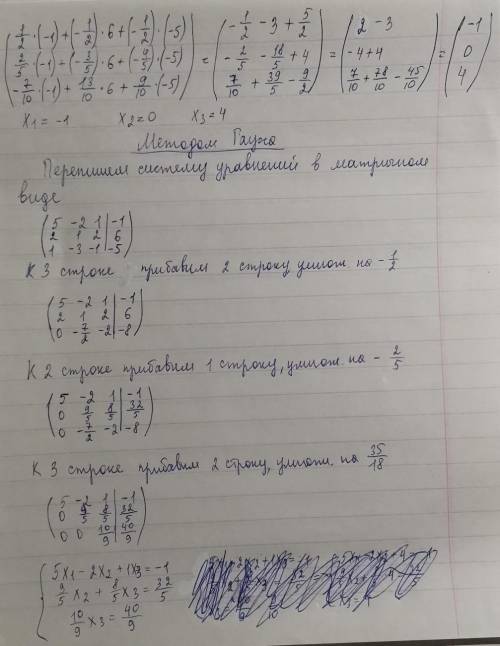 ( 1/2 · (-1) + (-1/2) · 6 + (-1/2) · (-5) ) = ( -1/2 - 3 + 5/2 ) = ( 2 - 3 ) = ( -1 )
( 2/5 · (-1) + (-3/5) · 6 + (-4/5) · (-5) ) ( -2/5 - 18/5 + 4 ) ( -4 + 4 ) ( 0 )
( -7/10 · (-1) + 13/10 · 6 + 9/10 · (-5) ) ( 7/10 + 39/5 - 9/2 ) ( 7/10 + 78/10 - 45/10 ) ( 4 )
x1 = -1 x2 = 0 x3 = 4
Методом Гаусса
Перепишем систему уравнений в матричном
виде
( 5 -2 1 | -1 )
( 2 1 2 | 6 )
( 1 -3 -1 | -5 )
К 3 строке прибавим 2 строку умнож. на -1/2
( 5 -2 1 | -1 )
( 2 1 2 | 6 )
( 0 -7/2 -2 | -8 )
К 2 строке прибавим 1 строку, умнож. на -2/5
( 5 -2 1 | -1 )
( 0 9/5 8/5 | 32/5 )
( 0 -7/2 -2 | -8 )
К 3 строке прибавим 2 строку, умнож. на 35/18
( 5 -2 1 | -1 )
( 0 9/5 8/5 | 32/5 )
( 0 0 10/9 | 40/9 )
{ 5x1 - 2x2 + 1x3 = -1
9/5 x2 + 8/5 x3 = 32/5
10/9 x3 = 40/9